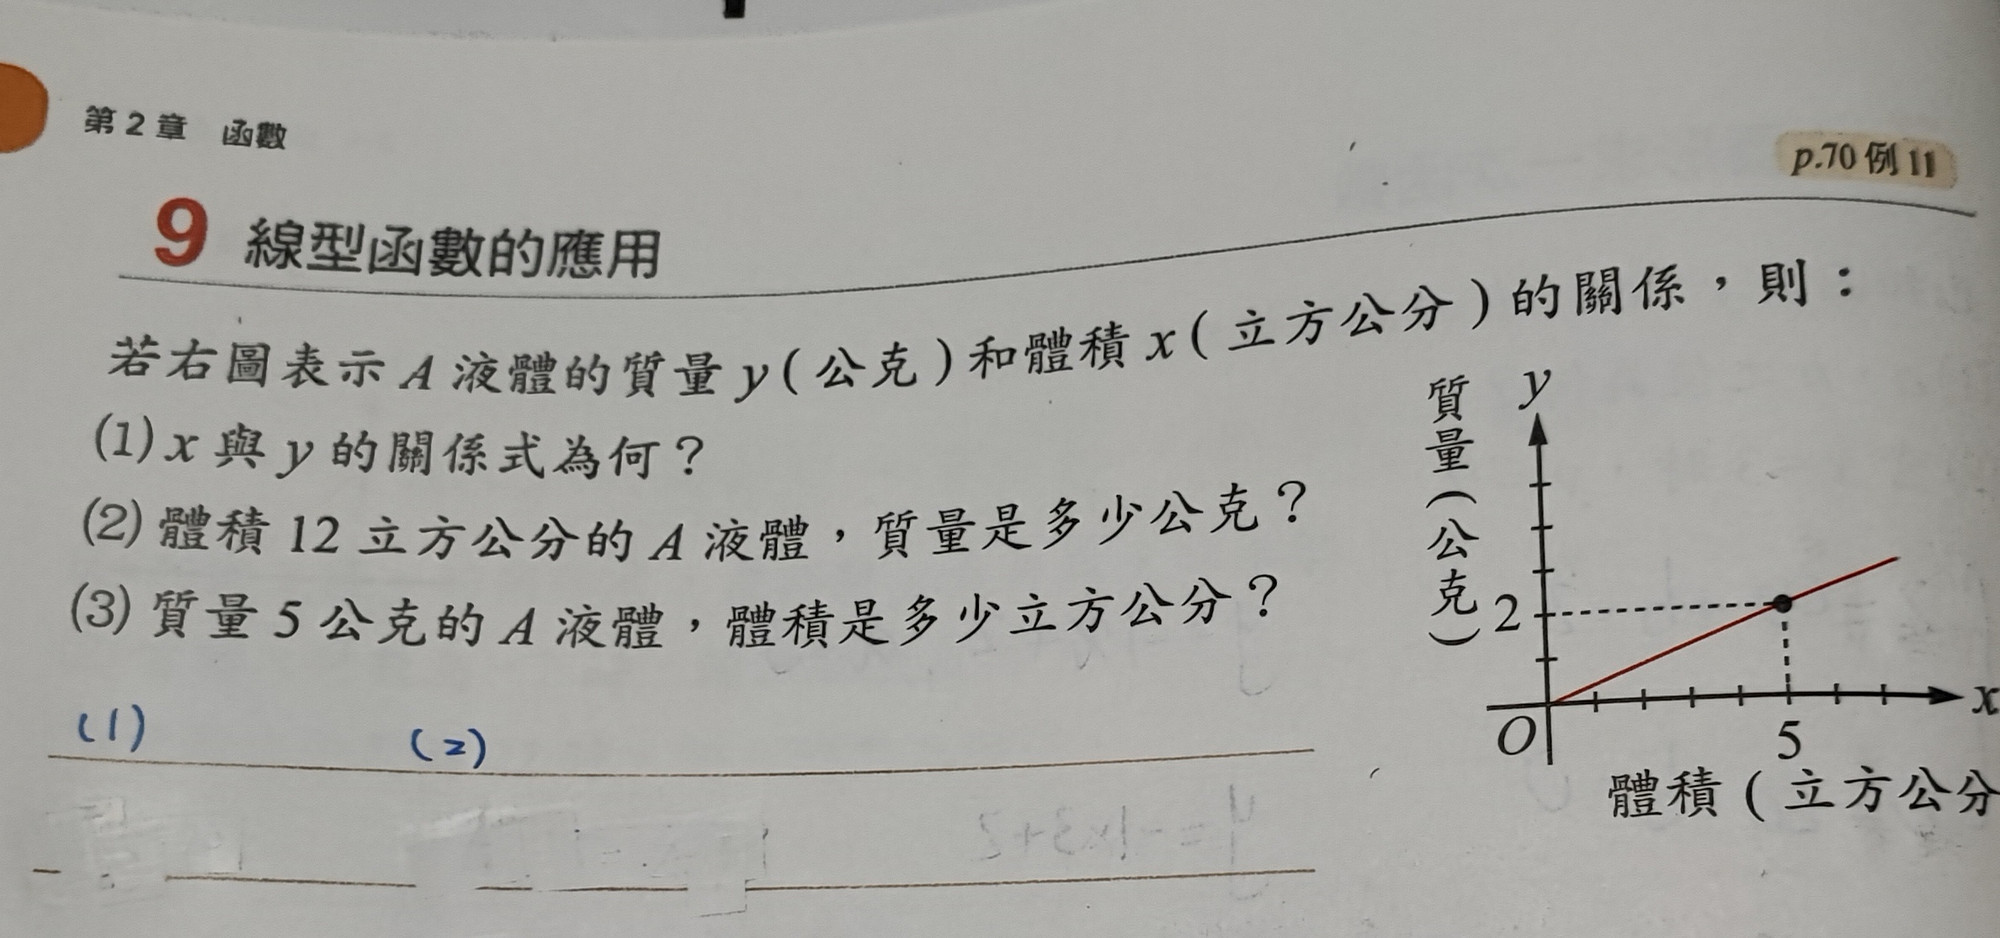 第2章 函數
p.70 例 11
9 線型函數的應用
若右圖表示 A 液體的質量 y ( 公克 ) 和體積 x ( 立方公分 ) 的關係，則：
(1) x 與 y 的關係式為何？
(2) 體積 12 立方公分的 A 液體，質量是多少公克？
(3) 質量 5 公克的 A 液體，體積是多少立方公分？
質量(公克)
y
2
O
5
x
體積 ( 立方公分
(1) (2)